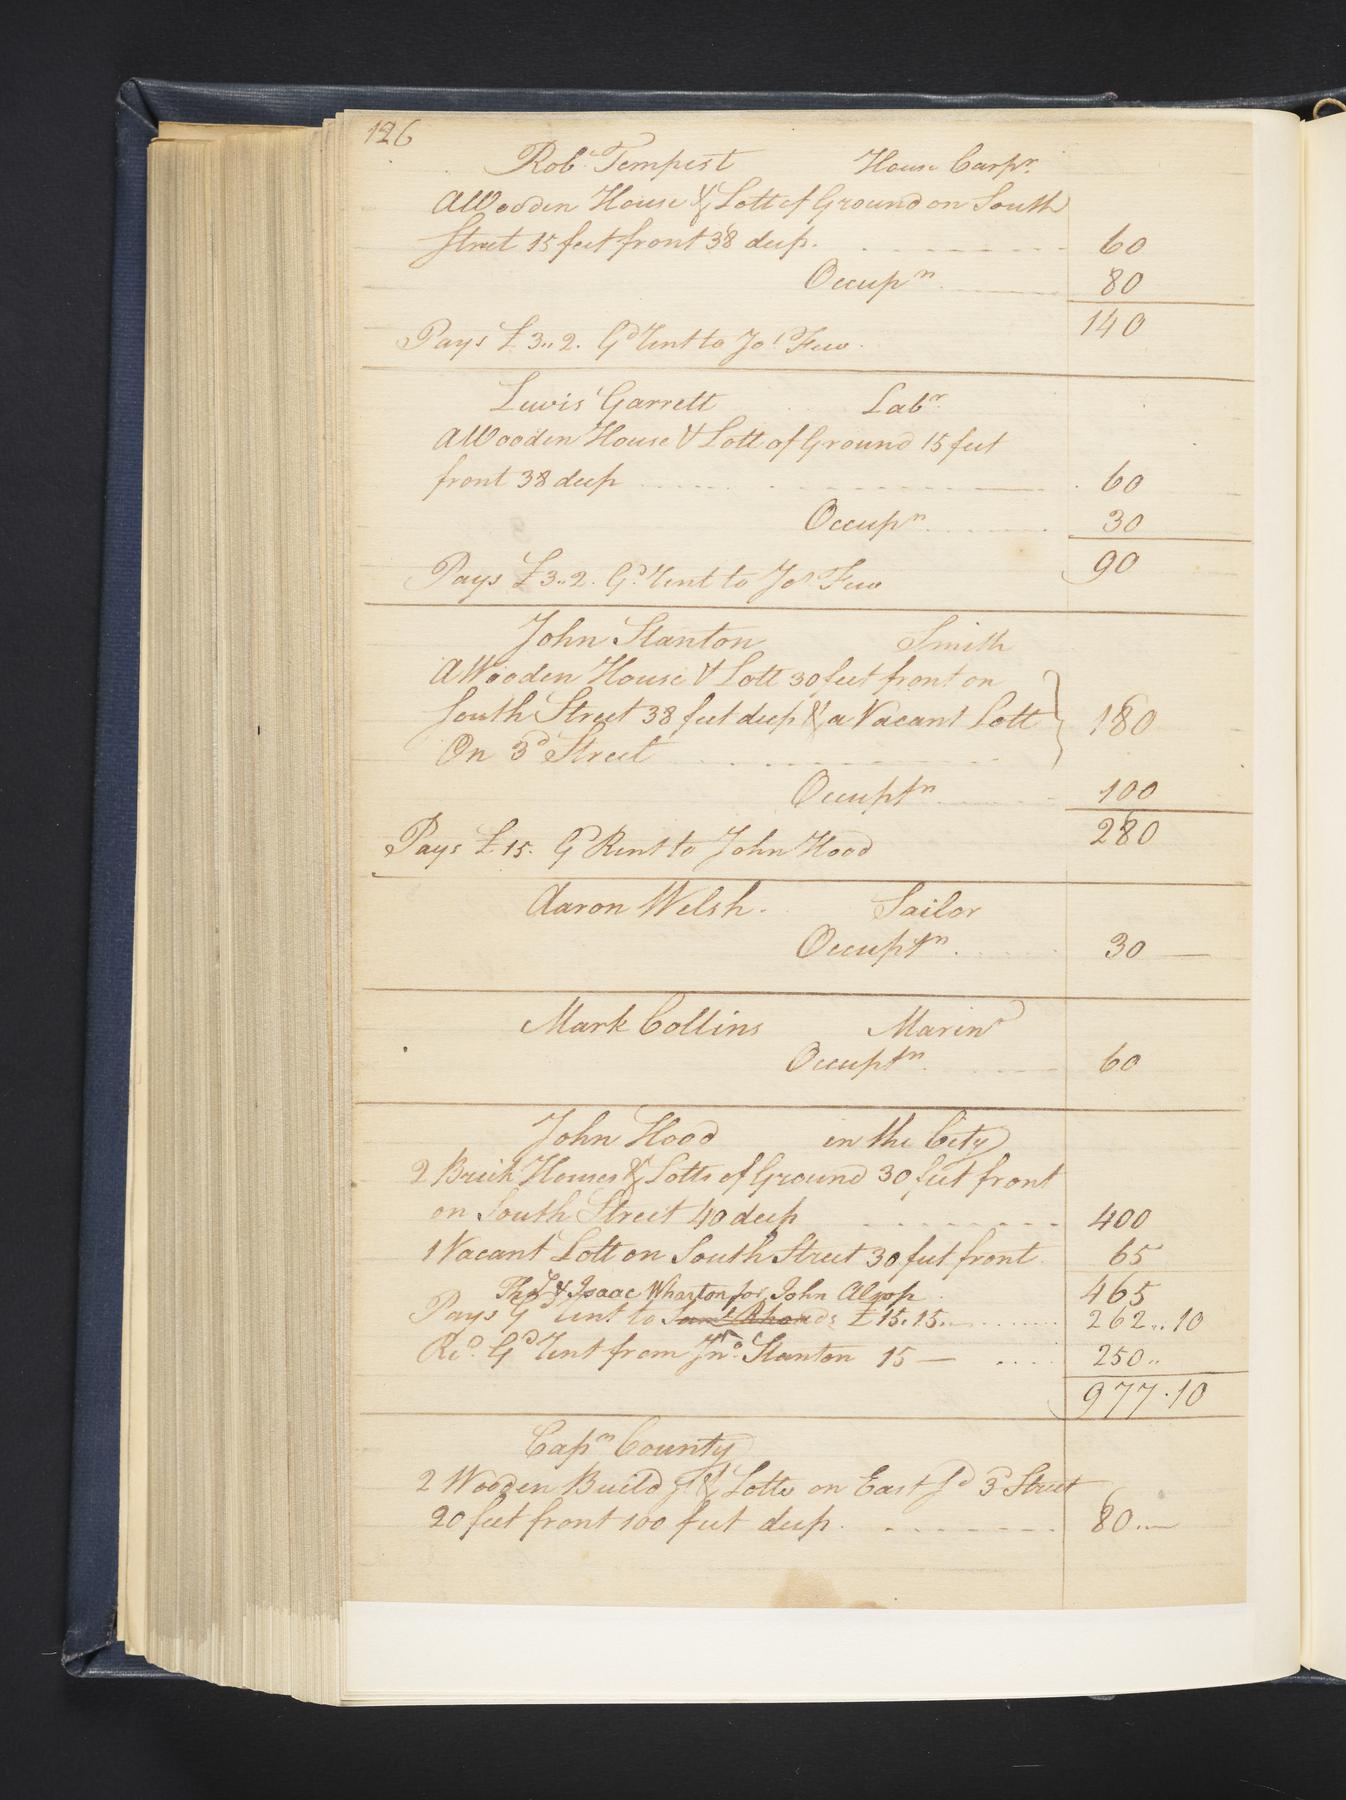 126
Robt. Tempest House Carpr.
A Wooden House & Lott of Ground on South
Street 15 feet front 38 deep. 60
Occupn. 80
140
Pays £3..2. Gd Rent to Jos Few.
Lewis Garrett Labr.
A Wooden House & Lott of Ground 15 feet
front 38 deep 60
Occupn. 30
90
Pays £3..2. Gd. Rent to Jos Few
John Stanton Smith
A Wooden House & Lott 30 feet front on
South Street 38 feet deep & a Vacant Lott 180
On 3d Street
Occuptn 100
280
Pays £15. Gd Rent to John Hood
Aaron Welsh. Sailor
Occuptn. 30 —
Mark Collins Marinr
Occuptn. 60
John Hood in the City
2 Brick Houses & Lotts of Ground 30 feet front
on South Street 40 deep 400
1 Vacant Lott on South Street 30 feet front. 65
Thos & Isaac Wharton for John Alsop. 465
Pays Gd Rent to Saml Rhoads £15.15. 262..10
Recd. Gd Rent from Jno. Stanton 15 — 250..
977.10
Capn County
2 Wooden Buildgs. & Lotts on East Sd 3d Street
20 feet front 100 feet deep. 80..—